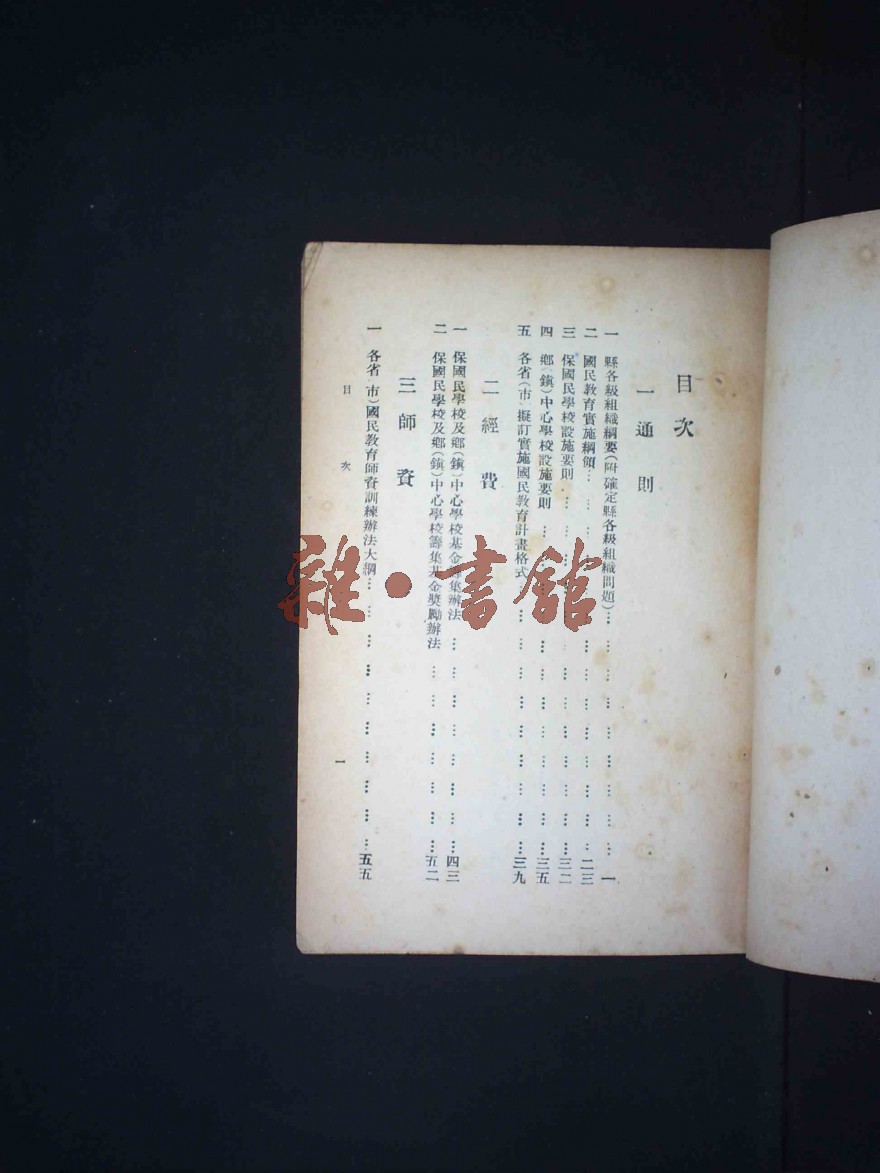 目次
一通則
一 縣各級組織綱要(附確定縣各級組織問題)………………………一
二 國民教育實施綱領………………………二三
三 保國民學校設施要則………………………三二
四 鄉(鎮)中心學校設施要則………………………三五
五 各省(市)擬訂實施國民教育計畫格式………………………三九
二經費
一 保國民學校及鄉(鎮)中心學校基金籌集辦法………………………四三
二 保國民學校及鄉(鎮)中心學校籌集基金獎勵辦法………………………五二
三師資
一 各省(市)國民教育師資訓練辦法大綱………………………五五
目次
一
雜·書館